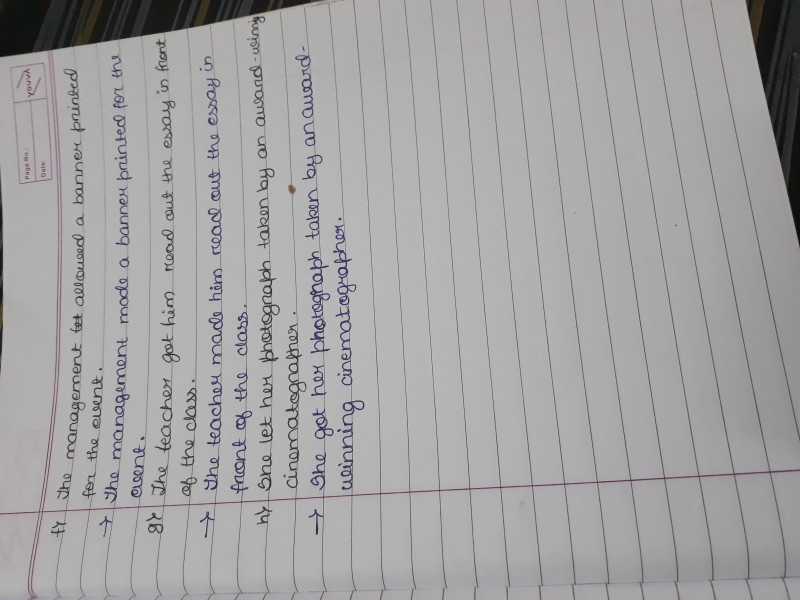 Page No.:
Date:
YOUVA
f) The management allowed a banner printed
for the event.
→ The management made a banner printed for the
event.
g) The teacher got him read out the essay in front
of the class.
→ The teacher made him read out the essay in
front of the class.
h) She let her photograph taken by an award-wining
cinematographer.
→ She got her photograph taken by an award-
winning cinematographer.